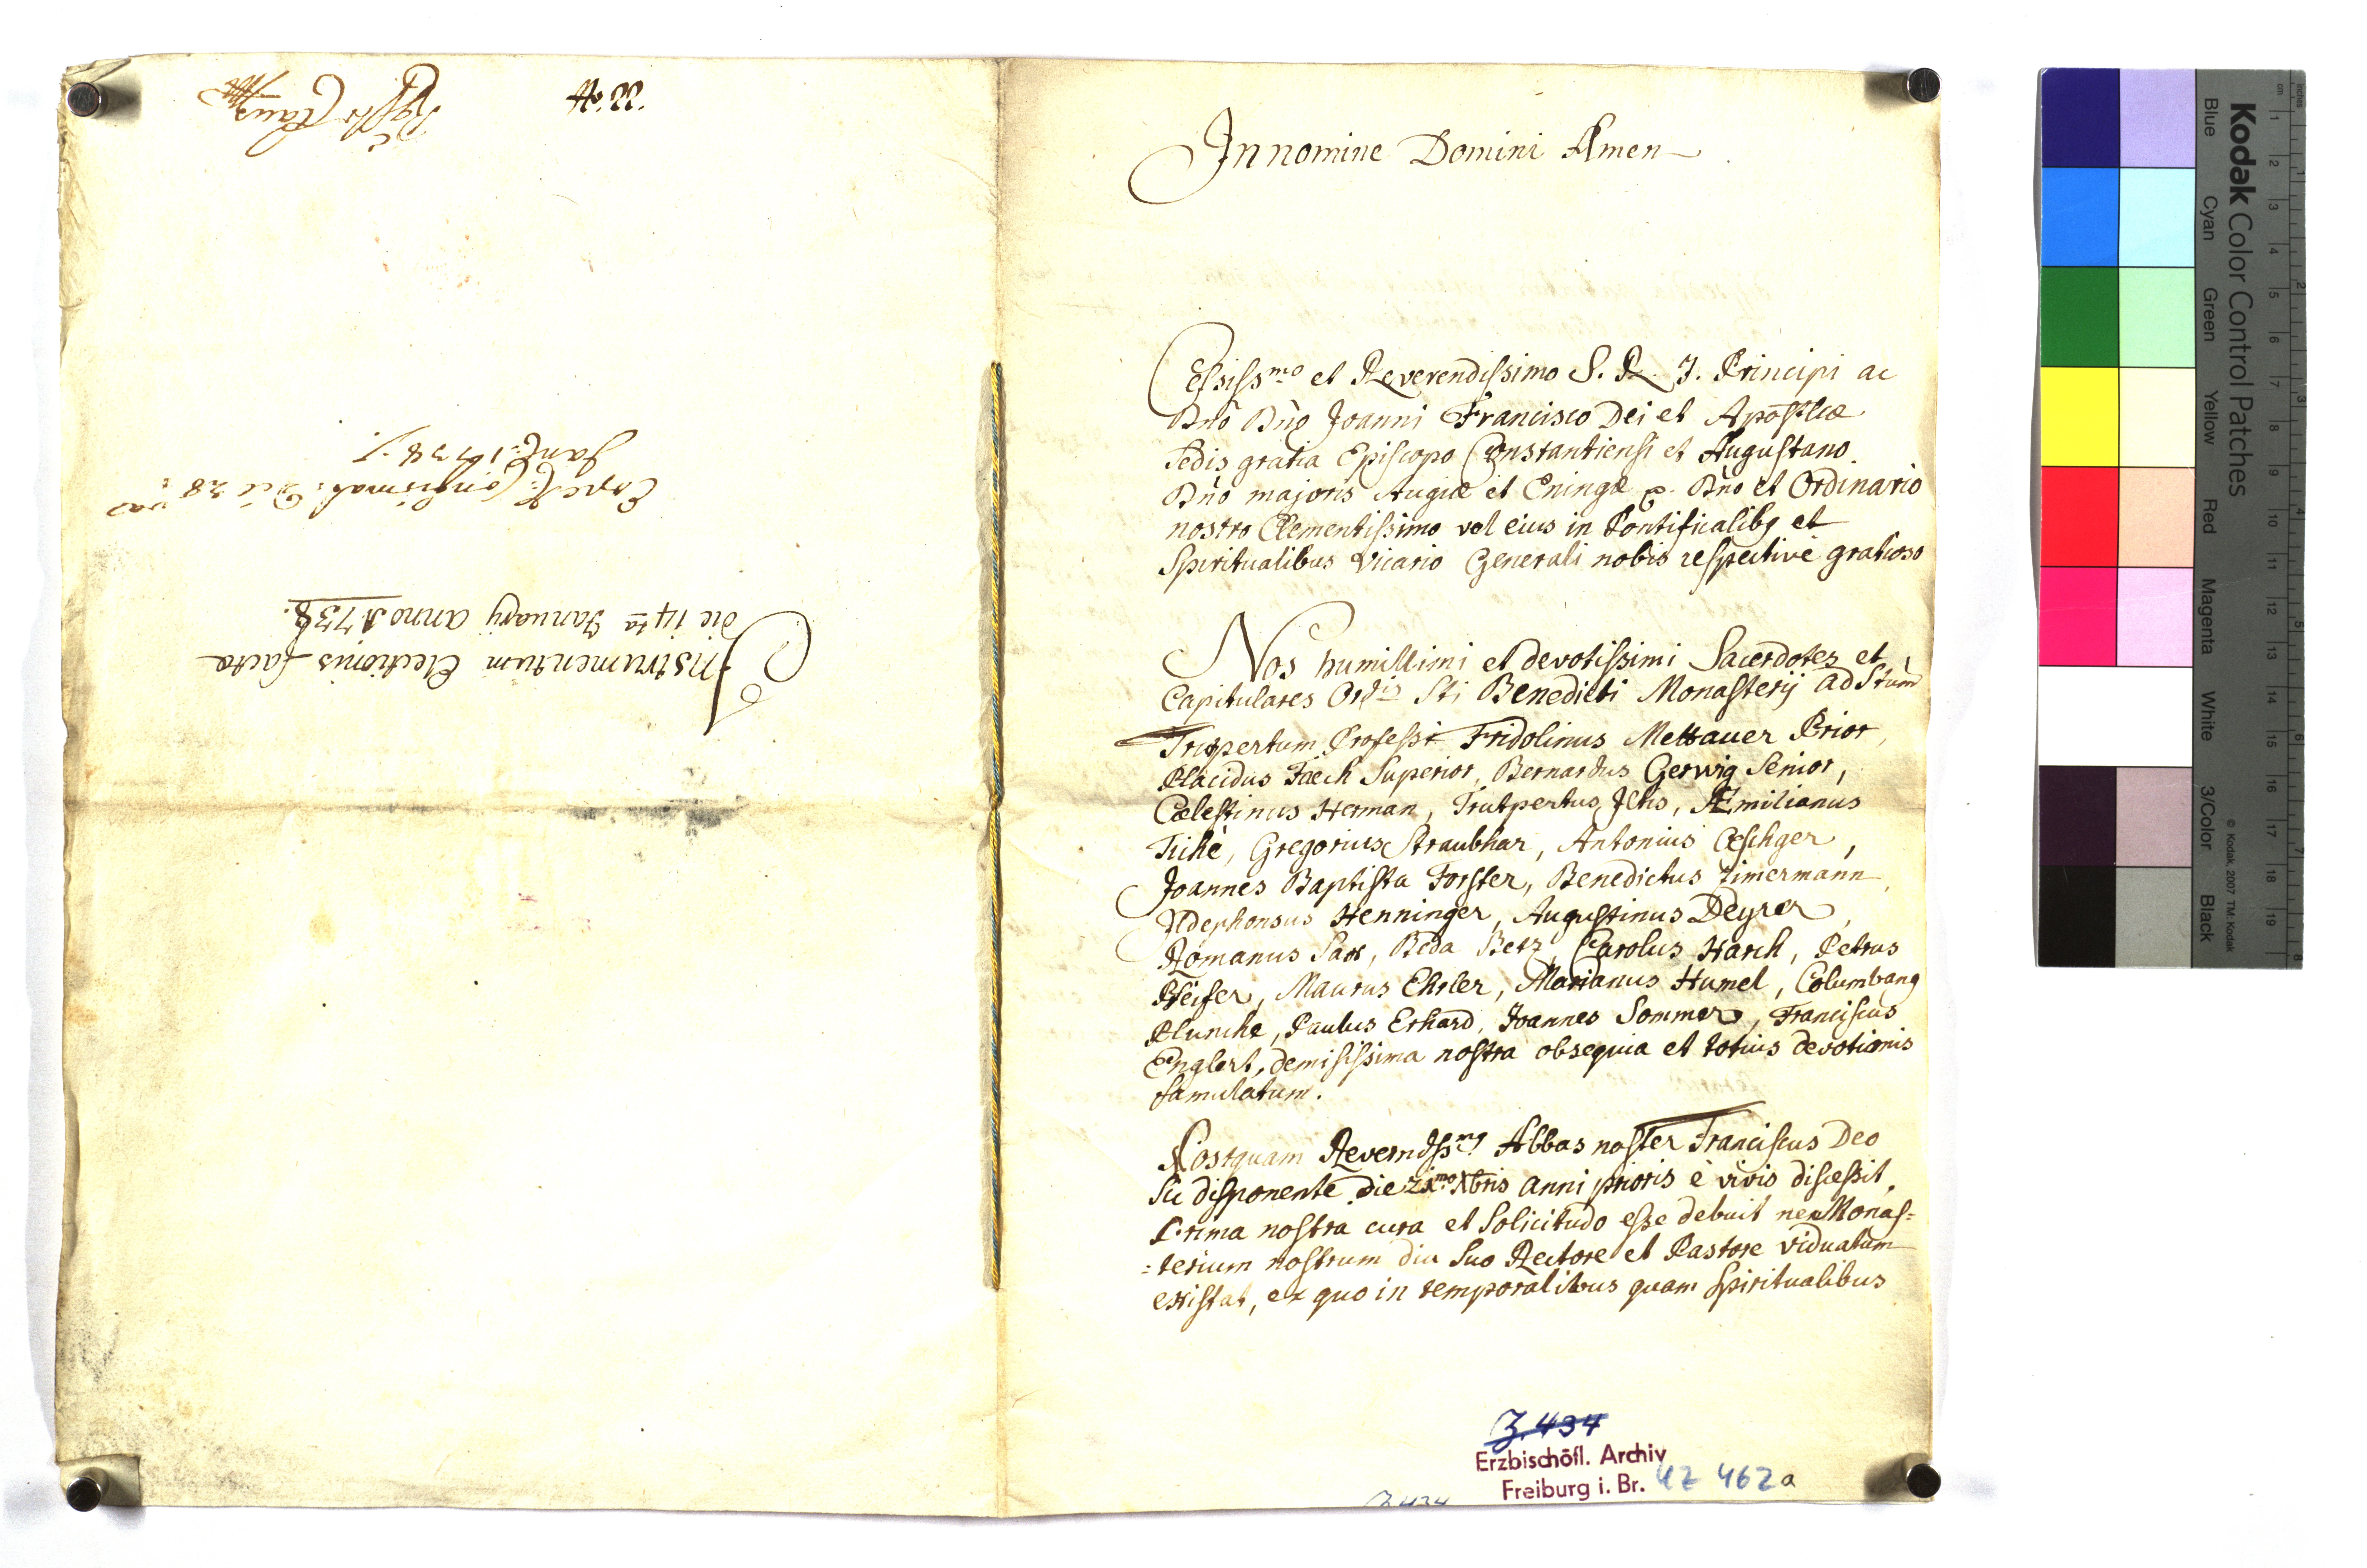 No. 22.
Instrumentum Electionis facta
die 14ta Januarij anno 1738.
Confirmat: Die 28
Jan: 1738.
In nomine Domini Amen
Celsissmo et Reverendissimo S. R. J. Principi ac
Dnō Dnō Joanni Francisco Dei et Apostlicæ
Sedis gratia Episcopo Constantiensi et Augustano
Dnō majoris Augiæ et Eningæ Dnō et Ordinario
nostro Clementissimo vel eius in Pontificalibq et
Spiritualibus Vicario Generali nobis respective gratioso
Nos humillimi et devotissimi Sacerdotes et
Capitulares Ordis Sti Benedicti Monasterij ad Stum
Trupertum Professi Fridolinus Mettauer Prior,
Placidus Faech Superior, Bernardus Gerwig Senior,
Cælestinus Herman, Trutpertus Iltis, Æmilianus
Tiché, Gregorius Straubhar, Antonius Œschger,
Joannes Baptista Forster, Benedictus Zimermann,
Ildephonsus Henninger, Augustinus Deyrer,
Romanus Sax, Beda Betz, Carolus Harch, Petrus
Pfeifer, Maurus Ehrler, Marianus Humel, Columbanq
Plunche, Paulus Erhard, Joannes Sommer, Franciscus
Englert, demississima nostra obsequia et totius devotionis
famulatum.
Postquam Reverndssmq Abbas noster Franciscus Deo
sic disponente die Xbris anni prioris è vivis discessit,
Prima nostra cura et Solicitudo esse debuit ne Monas=
=terium nostrum diu suo Rectore et Pastore viduatum
existat, ex quo in temporalibus quam Spiritualibus
Z. 434
Erzbischöfl. Archiv
Freiburg i. Br. UZ 462a
Z 434
Kodak Color Control Patches
Blue Cyan Green Yellow Red Magenta White 3/Color Black
© Kodak, 2007 TM: Kodak
inches 1 2 3 4 5 6 7 8
cm 1 2 3 4 5 6 7 8 9 10 11 12 13 14 15 16 17 18 19